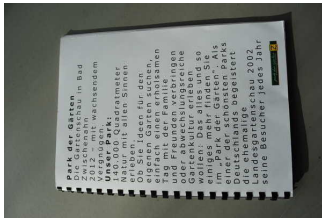 Park der Gärten
Die Gartenschau in Bad
Zwischenahn
2012 - mit wachsendem
Vergnügen.
Unser Park:
140.000 Quadratmeter
Natur mit allen Sinnen
erleben.
Ob Sie Ideen für den
eigenen Garten suchen,
einfach einen erholsamen
Tag mit der Familie
und Freunden verbringen
oder abwechslungsreiche
Gartenkultur erleben
wollen: Das alles und so
einiges mehr finden Sie
im „Park der Gärten“. Als
einer der schönsten Parks
Deutschlands begeistert
die ehemalige
Landesgartenschau 2002
seine Besucher jedes Jahr